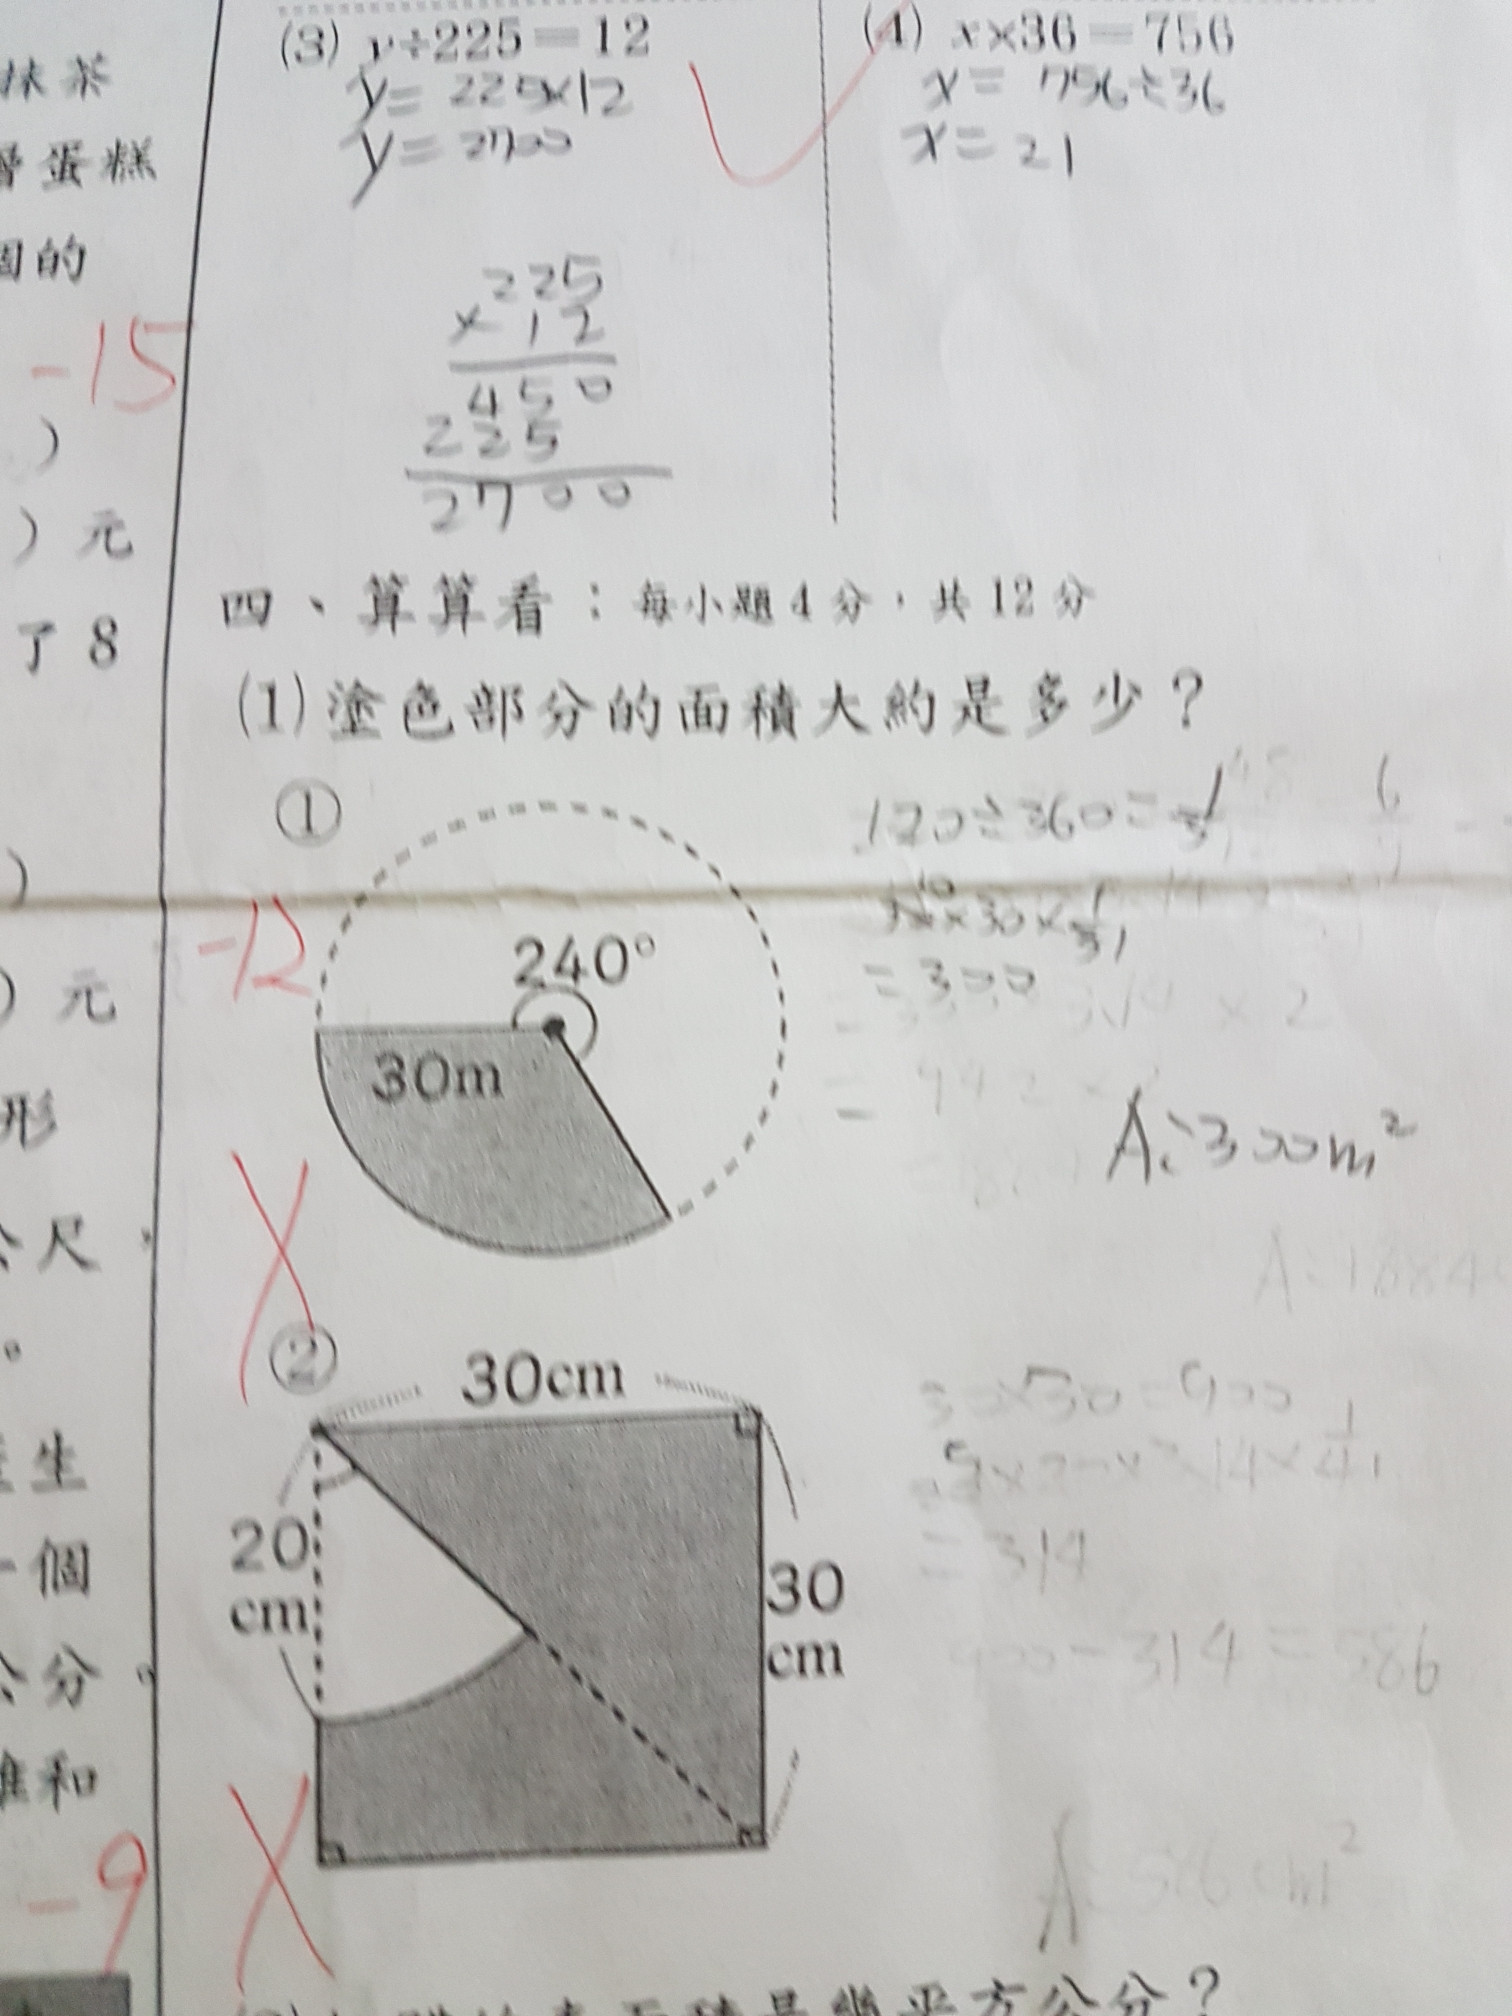 抹茶
層蛋糕
個的
-15
)
) 元
了 8
)
) 元
形
公尺,
。
生
一個
公分。
和
-9
(3) y÷225=12
y= 225×12
y= 2700
225
× 12
450
225
2700
(4) x×36=756
x= 756÷36
x= 21
四、算算看:每小題4分,共12分
(1)塗色部分的面積大約是多少?
①
-12
240°
30m
120÷360=
= 300
A:300m²
②
30cm
20
cm
30
cm
30×30=900
= 314
900-314=586
A: 586cm²
平方公分?